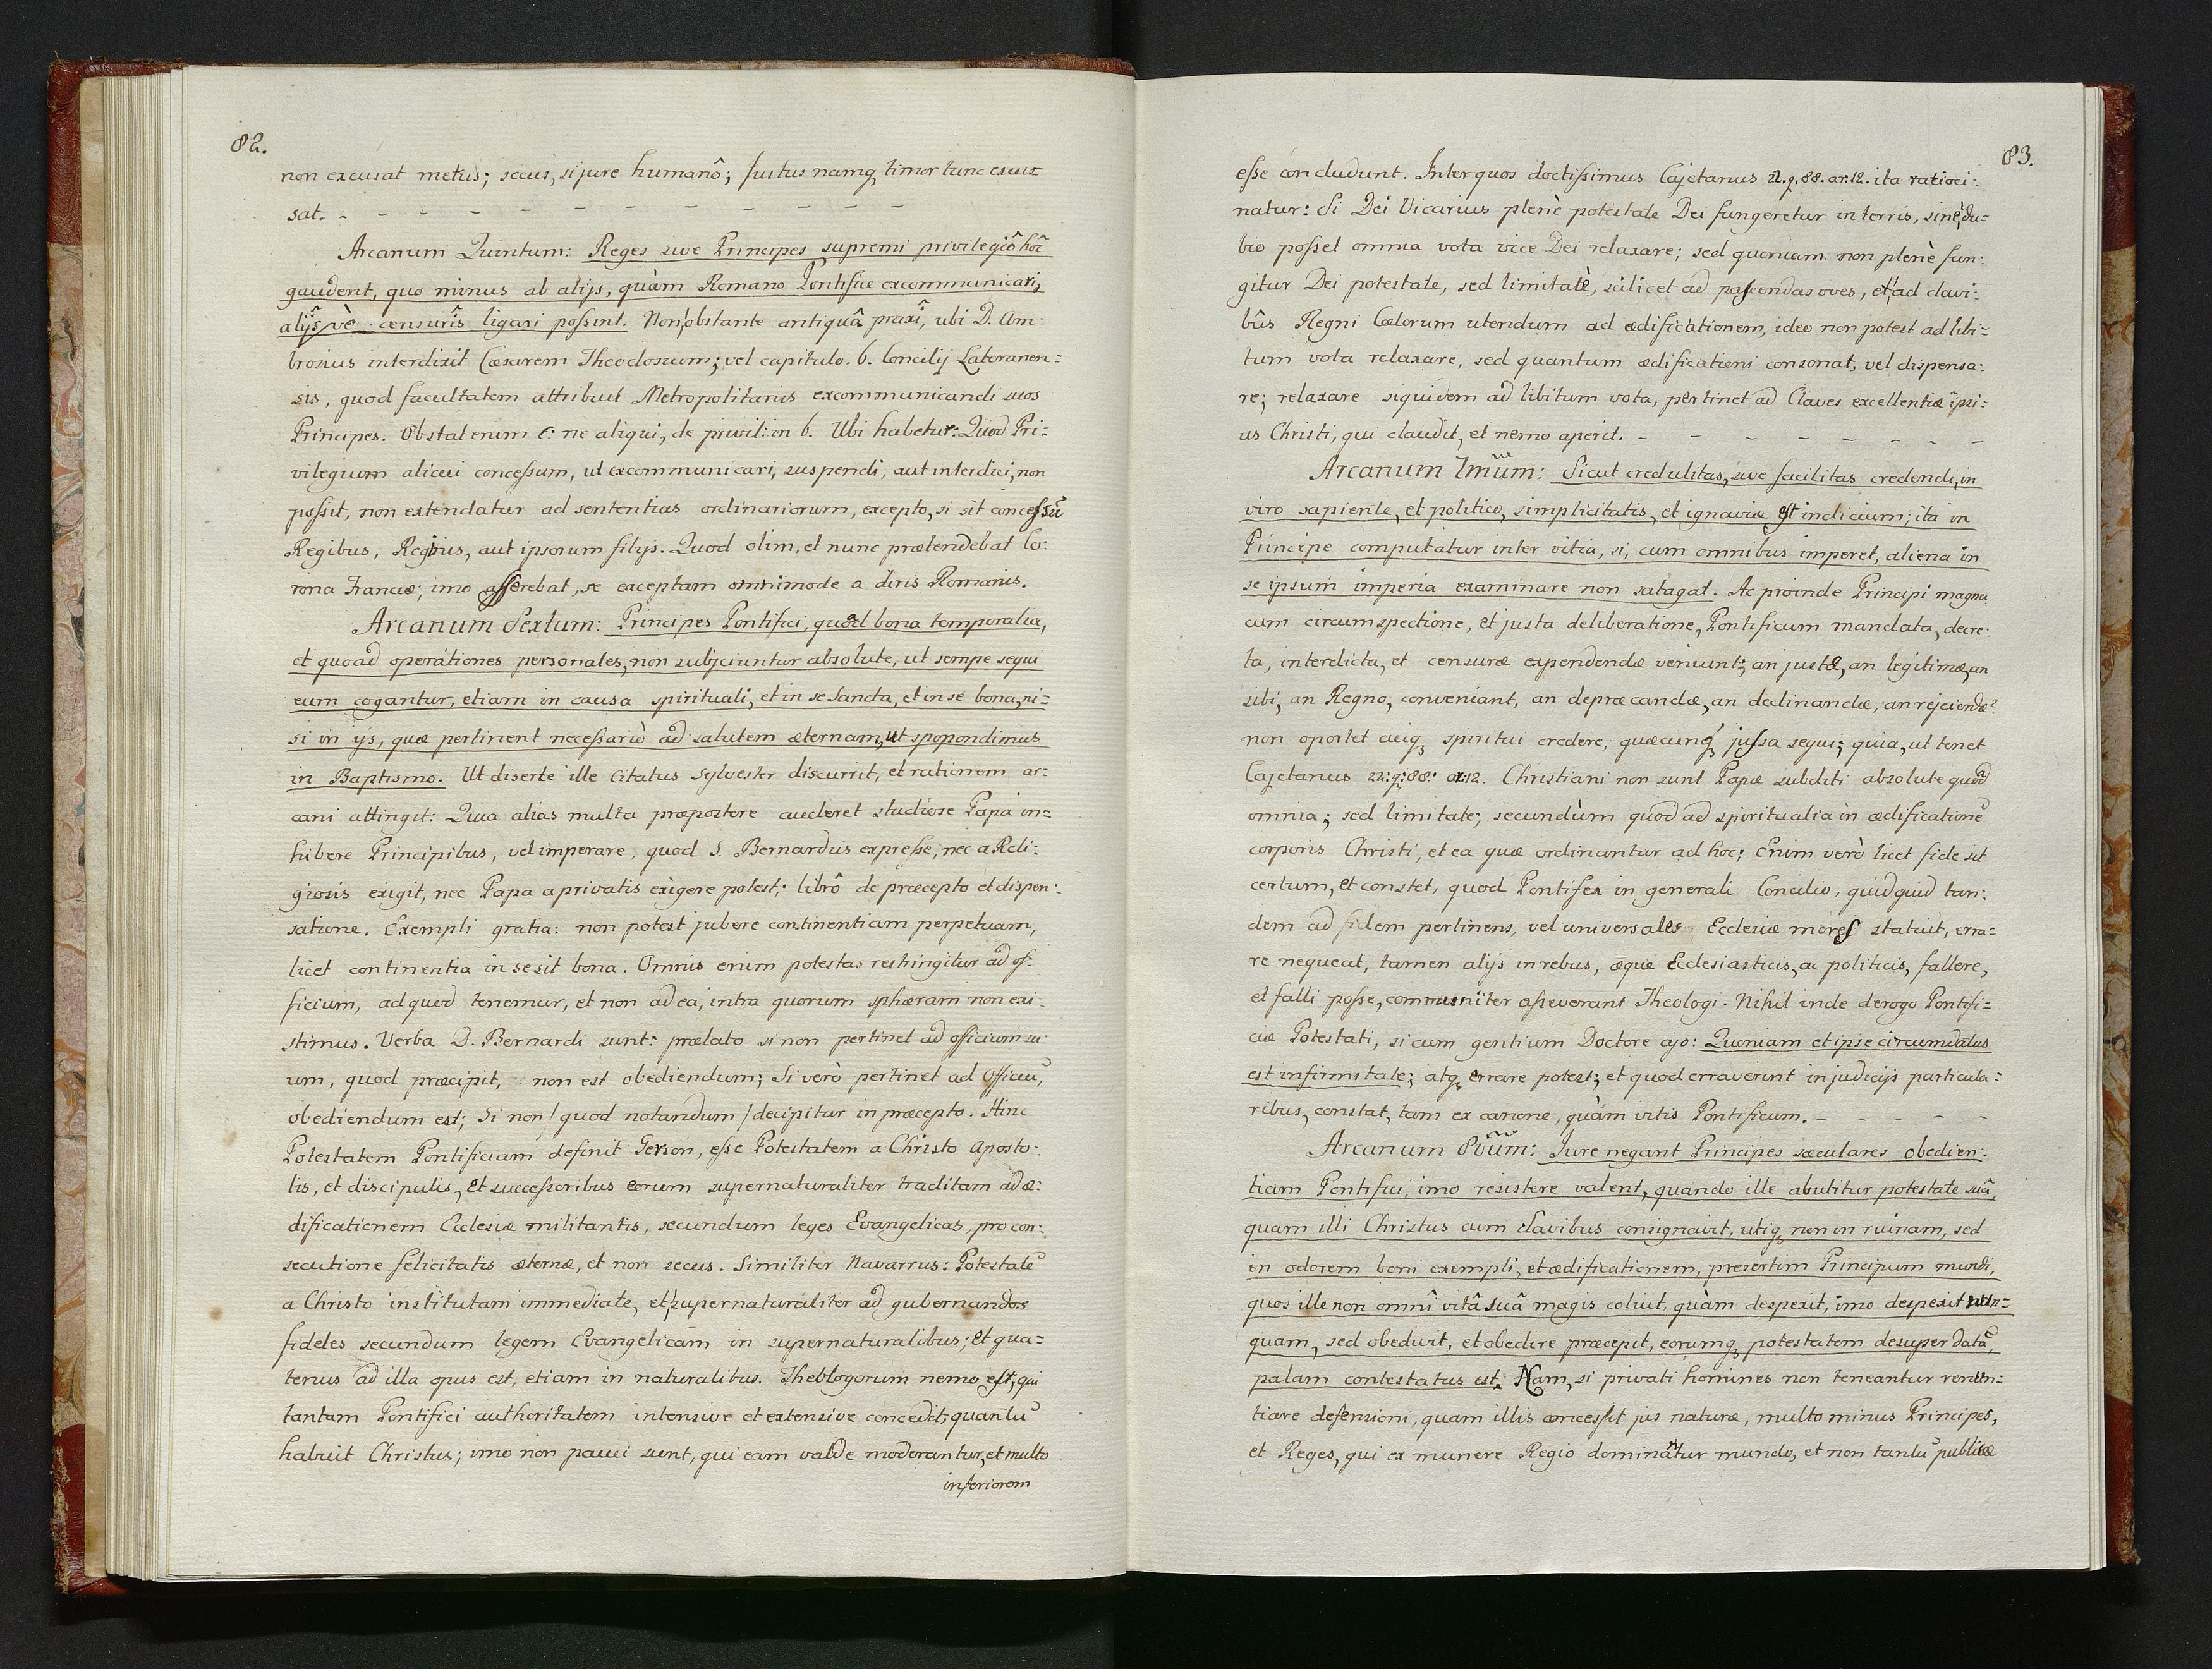 82.
non excusat metus; secus, si jure humanô; Justus namq, timor tunc excu=
sat. - - - - - - - - - -
Arcanum Quintum: Reges sive Principes supremi privilegiô hôc
gaudent, quo minus ab alijs, quàm Romano Pontifice excommunicari,
alijs vè censuris ligari possint. Non obstante antiquâ praxi, ubi D. Am:
brosius interdixit Cæsarem Theodosium; vel capitulo. 6. Concilij Lateranen=
sis, quod facultatem attribuit Metropolitanis excommunicandi suos
Principes. Obstat enim C: ne aliqui, de privil: in 6. Ubi habetur: Quod Pri=
vilegium alicui concessum, ut excommunicari, suspendi, aut interdici, non
possit, non extendatur ad sententias ordinariorum, excepto, si sit concessū
Regibus, Regijs, aut ipsorum filijs. Quod olim, et nunc prætendebat Co:
rona Franciæ; imo asserebat, se exceptam omnimode a diris Romanis.
Arcanum Sextum: Principes Pontifici, quoad bona temporalia,
et quoad operationes personales, non subjiciuntur absolute, ut sempe sequi
eum cogantur, etiam in causa spirituali, et in se Sancta, et in se bona, ni=
si in ijs, quæ pertinent necessariò ad salutem æternam, ut spopondimus
in Baptismo. Ut diserte ille Citatus Sylvester discurrit, et rationem ar=
cani attingit: Quia alias multa præpostere auderet studiose Papa in=
hibere Principibus, vel imperare, quod S. Bernardus expresse, nec a Reli=
giosis exigit, nec Papa a privatis exigere potest; librô de præcepto et dispen:
satione. Exempli gratia: non potest jubere continentiam perpetuam,
licet continentia in se sit bona. Omnis enim potestas restringitur ad of:
ficium, ad quod tenemur, et non ad ea, intra quorum sphæram non exi:
stimus. Verba D. Bernardi sunt: prælato si non pertinet ad officium su:
um, quod præcipit, non est obediendum; Si verò pertinet ad Officiū,
obediendum est; Si non / quod notandum / decipitur in præcepto. Hinc
Potestatem Pontificiam definit Gerson, esse Potestatem a Christo Aposto:
lis, et discipulis, et successoribus eorum supernaturaliter traditam ad æ:
dificationem Ecclesiæ militantis, secundum leges Evangelicas, pro con:
secutione felicitatis æternæ, et non secus. Similiter Navarrus: Potestatē
a Christo institutam immediate, et supernaturaliter ad gubernandos
fideles secundum legem Evangelicam in supernaturalibus; et qua=
tenus ad illa opus est, etiam in naturalibus. Theologorum nemo est, qui
tantam Pontifici authoritatem intensive et extensive concedit, quantū
habuit Christus; imo non pauci sunt, qui eam valde moderantur, et multo
inferiorem
83.
esse concludunt. Inter quos doctissimus Cajetanus 22. q. 88. ar. 12. ita ratioci:
natur: Si Dei Vicarius plenè potestate Dei fungeretur in terris, sine du=
bio posset omnia vota vice Dei relaxare; sed quoniam non plenè fun:
gitur Dei potestate, sed limitatè, scilicet ad pascendas oves, et ad clavi:
bûs Regni Cœlorum utendum ad ædificationem, ideo non potest ad libi=
tum vota relaxare, sed quantum ædificationi consonat, vel dispensa:
re; relaxare siquidem ad libitum vota, pertinet ad Claves excellentiæ ipsi:
us Christi, qui claudit, et nemo aperit. - - - - - - - -
Arcanum 7mũm: Sicut credulitas, sive facilitas credendi, in
viro sapiente, et politico, simplicitatis, et ignaviæ est indicium; ita in
Principe computatur inter vitia, si, cum omnibus imperet, aliena in
se ipsum imperia examinare non satagat. Ac proinde Principi magna
cum circumspectione, et justa deliberatione, Pontificum mandata, decre:
ta, interdicta, et censuræ expendendæ veniunt; an justæ, an legitimæ, an
sibi, an Regno, conveniant, an depræcandæ, an declinandæ, an rejiciendæ?
non oportet cuiq, spiritui credere, quæcunq, jussa sequi; quia, ut tenet
Cajetanus 22: q: 88: ar: 12. Christiani non sunt Papæ subditi absolute quoad
omnia; sed limitate; secundùm quod ad spiritualia in ædificationē
corporis Christi, et ea quæ ordinantur ad hoc; Enim verò licet fide sit
certum, et constet, quod Pontifex in generali Concilio, quidquid tan:
dem ad fidem pertinens, vel universales Ecclesiæ mores statuit, erra=
re nequeat, tamen alijs in rebus, æque Ecclesiasticis, ac politicis, fallere,
et falli posse, communiter asseverant Theologi. Nihil inde derogo Pontifi=
ciæ Potestati, si cum gentium Doctore ajo: Quoniam et ipse circumdatus
est infirmitate; atq, errare potest; et quod erraverint in judicijs particula=
ribus, constat, tam ex canone, quàm vitis Pontificum. - - - - -
Arcanum 8vũm: Jure negant Principes sæculares obedien:
tiam Pontifici, imo resistere valent, quando ille abutitur potestate suâ,
quam illi Christus cum clavibus consignavit, utiq, non in ruinam, sed
in odorem boni exempli, et ædificationem, presertim Principum mundi,
quos ille non omni vitâ suâ magis coluit, quàm despexit, imo despexit nun=
quam, sed obedivit, et obedire præcepit, eorumq, potestatem desuper datā,
palam contestatus est. Nam, si privati homines non teneantur renun=
tiare defensioni, quam illis concessit jus naturæ, multo minus Principes,
et Reges, qui ex munere Regio dominantur mundo, et non tantū publicæ